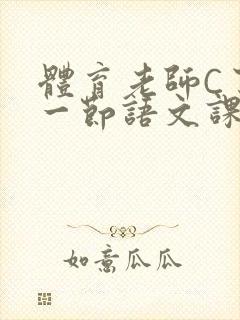 體育老師C
一節語文課
如意瓜瓜